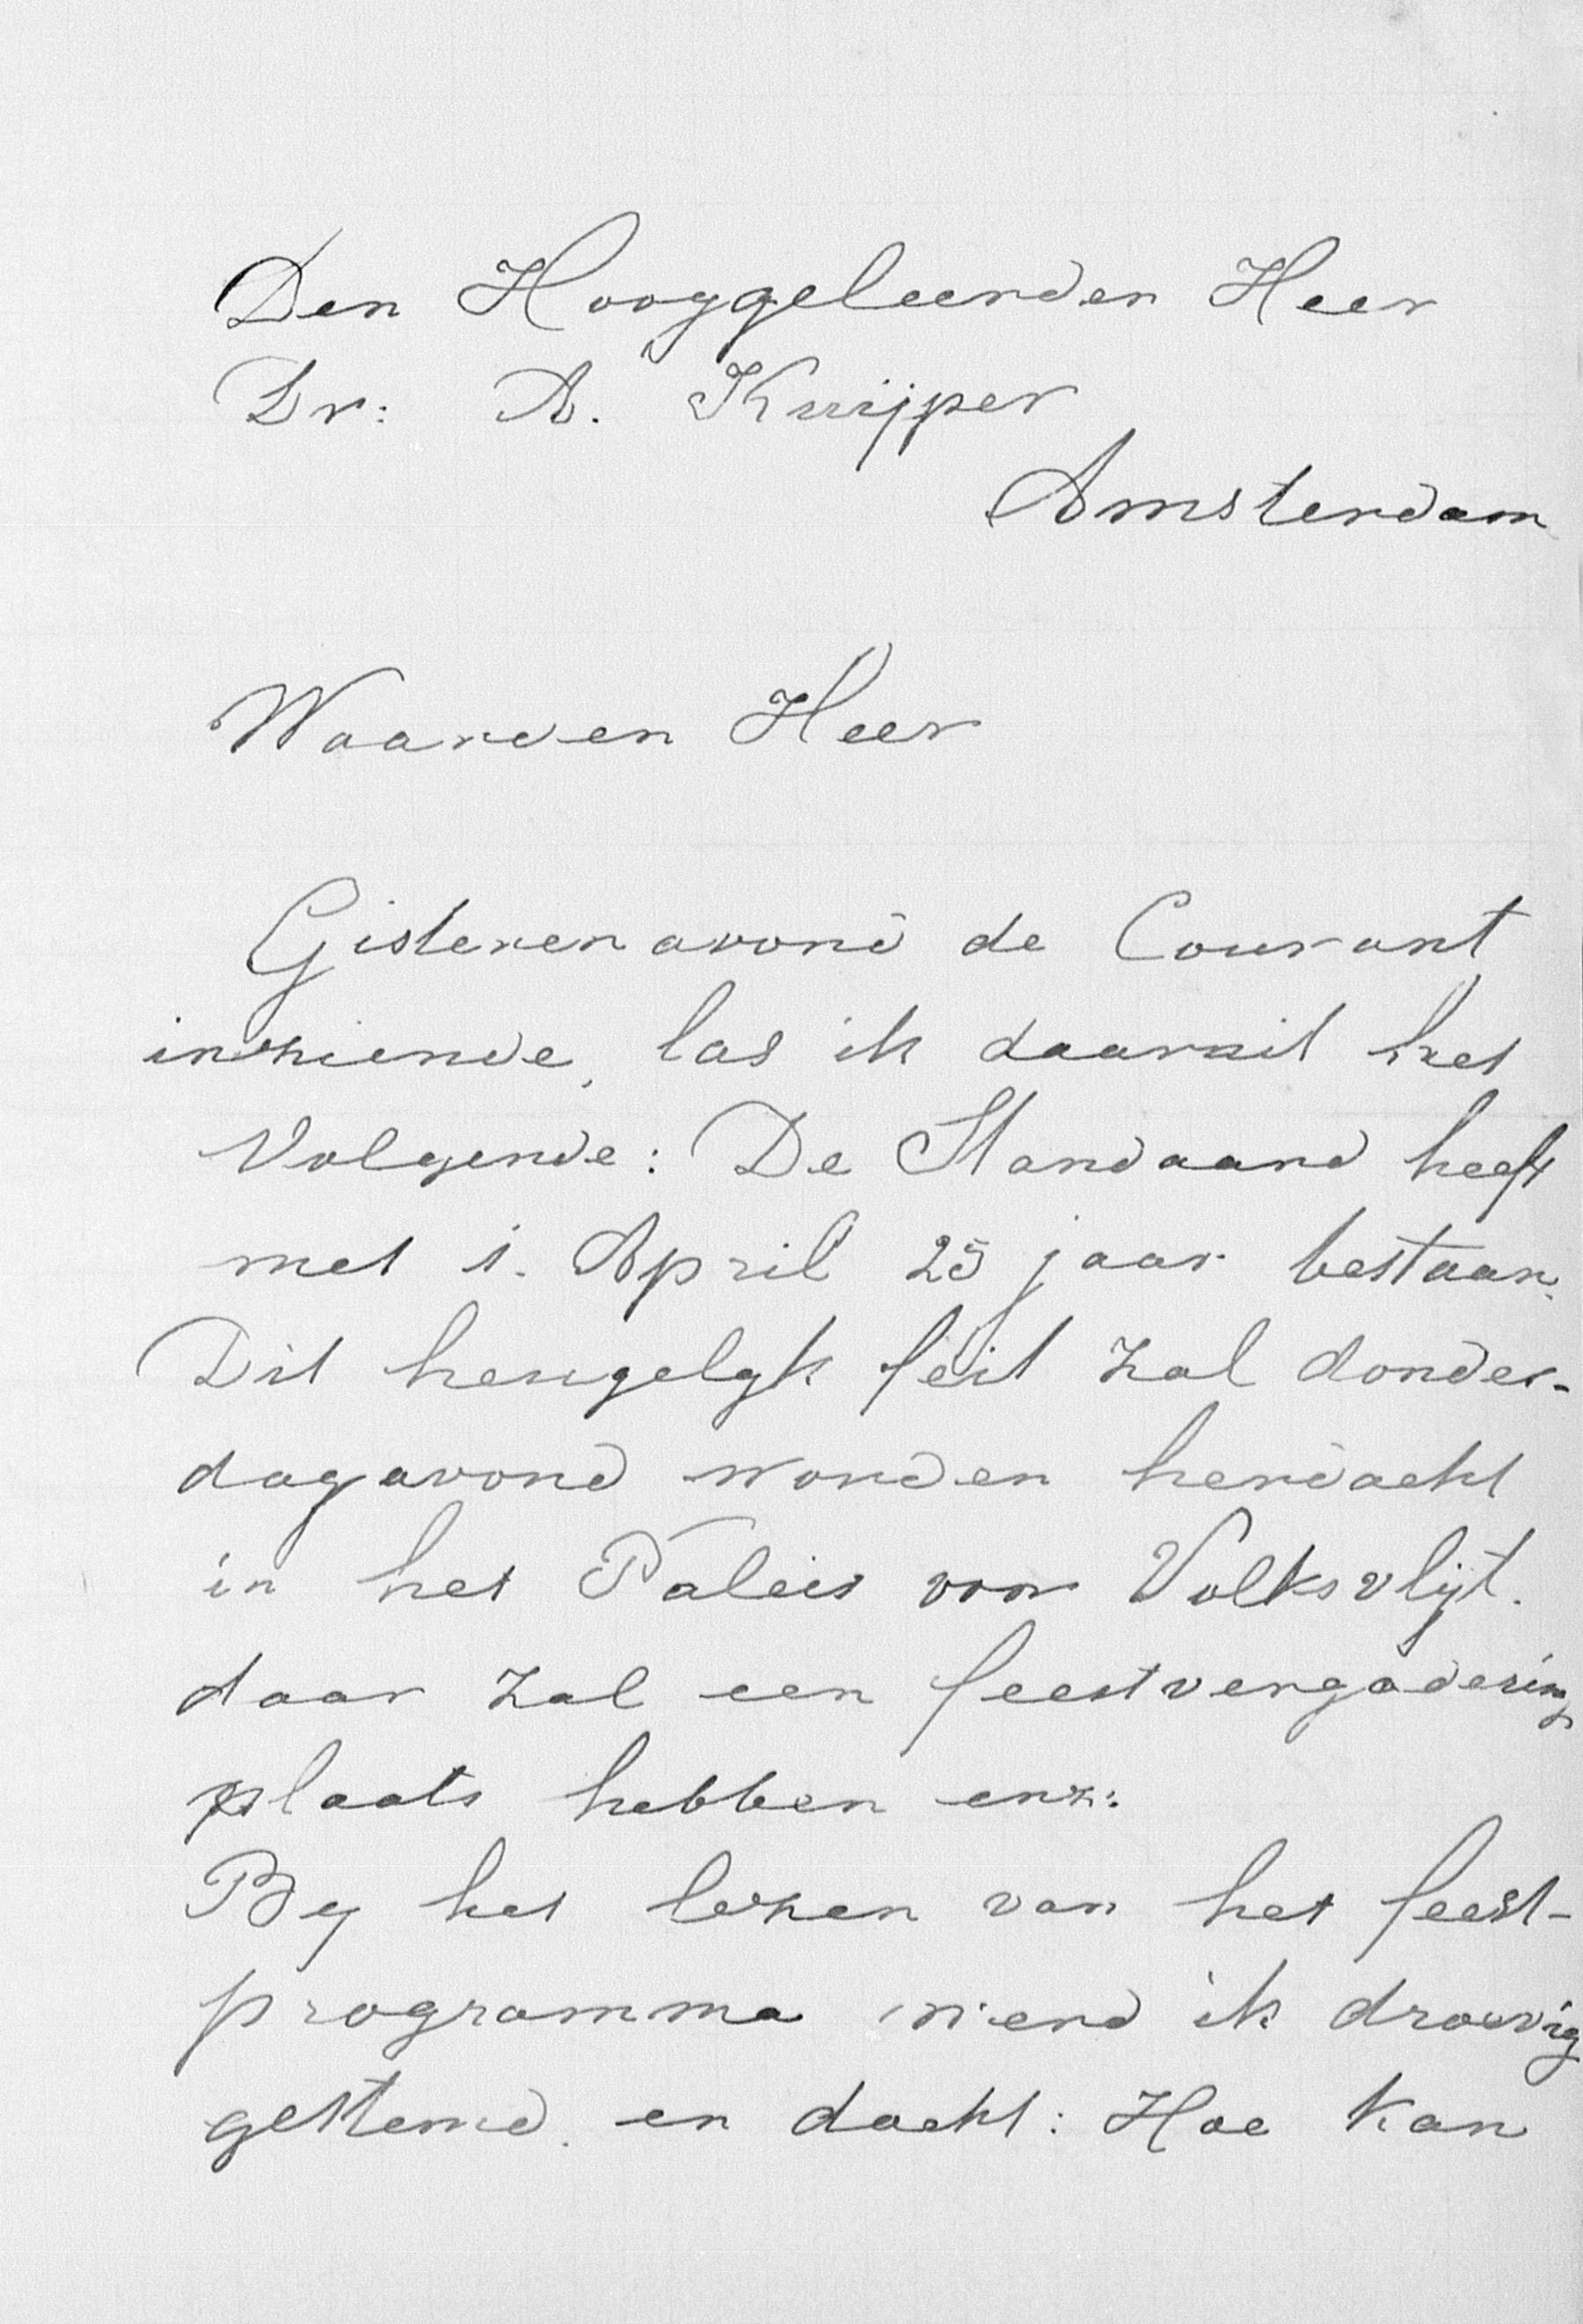 Den Hooggeleerden Heer
Dr: A. Kuijper
Amsterdam
Waarden Heer
Gisterenavond de Courant
inziende, las ik daaruit het
Volgende: De Standaard heeft
met 1. April 25 jaar bestaan.
Dit heugelyk feit zal donder-
dagavond worden herdacht
in het Paleis voor Volksvlijt.
daar zal een feestvergadering
plaats hebben enz:
By het lezen van het feest-
programma werd ik droevig
gestemd. en dacht: Hoe kan